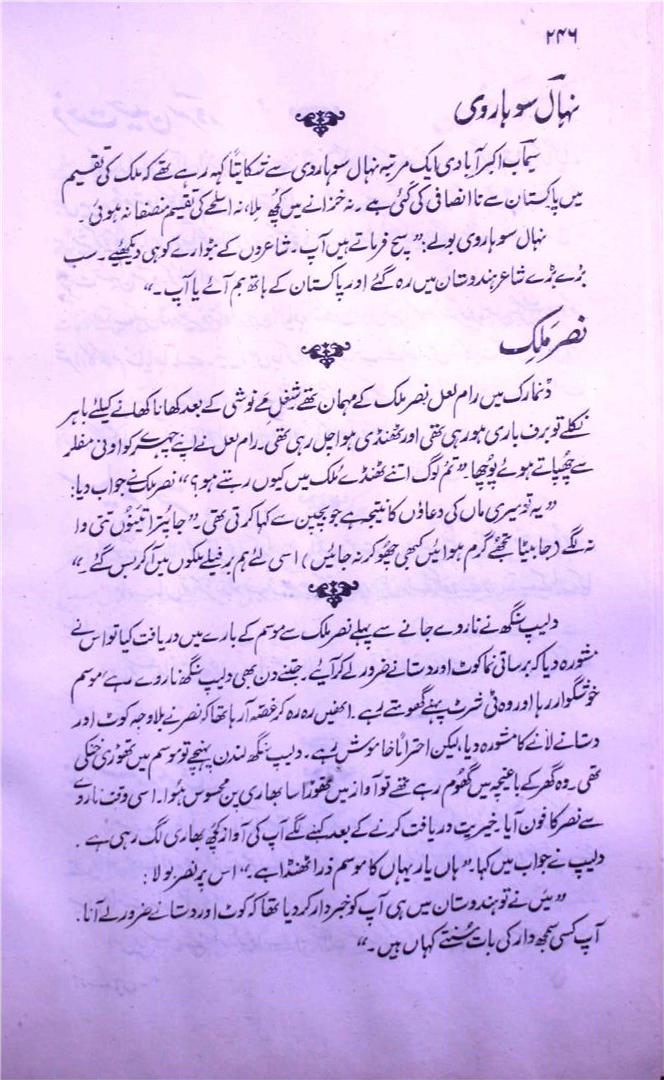 ۲۴۶
نہال سوہاروی
سیماب اکبر آبادی ایک مرتبہ نہال سوہاروی سے شکایتاً کہہ رہے تھے کہ ملک کی تقسیم
میں پاکستان سے نا انصافی کی گئی ہے۔ نہ خزانے میں کچھ ملا، نہ اسلحے کی تقسیم منصفانہ ہوئی۔
نہال سوہاروی بولے: ”سچ فرماتے ہیں آپ۔ شاعروں کے بٹوارے کو ہی دیکھئے۔ سب
بڑے بڑے شاعر ہندوستان میں رہ گئے اور پاکستان کے ہاتھ ہم آئے یا آپ۔“
نصر ملک
ڈنمارک میں رام لعل نصر ملک کے مہمان تھے شغلِ مے نوشی کے بعد کھانا کھانے کیلئے باہر
نکلے تو برف باری ہو رہی تھی اور ٹھنڈی ہوا چل رہی تھی۔ رام لعل نے اپنے چہرے کو اونی مفلر
سے چھپاتے ہوئے پوچھا۔ ”تم لوگ اتنے ٹھنڈے ملک میں کیوں رہتے ہو؟“ نصر ملک نے جواب دیا:
”یہ تو میری ماں کی دعاؤں کا نتیجہ ہے جو بچپن سے کہا کرتی تھی۔ ”جا پترا تینوں تتی وا
نہ لگے (جا بیٹا تجھے گرم ہوائیں کبھی چھو کر نہ جائیں) اسی لئے ہم برفیلے ملکوں میں آ کر بس گئے۔“
دلیپ سنگھ نے ناروے جانے سے پہلے نصر ملک سے موسم کے بارے میں دریافت کیا تو اس نے
مشورہ دیا کہ برساتی نما کوٹ اور دستانے ضرور لے کر آیئے۔ جتنے دن بھی دلیپ سنگھ ناروے رہے موسم
خوشگوار رہا اور وہ ٹی شرٹ پہنے گھومتے رہے۔ انھیں رہ رہ کر غصہ آ رہا تھا کہ نصر نے بلاوجہ کوٹ اور
دستانے لانے کا مشورہ دیا، لیکن احتراماً خاموش رہے۔ دلیپ سنگھ لندن پہنچے تو موسم میں تھوڑی خنکی
تھی۔ وہ گھر کے باغیچہ میں گھوم رہے تھے تو آواز میں تھوڑا سا بھاری پن محسوس ہوا۔ اسی وقت ناروے
سے نصر کا فون آیا۔ خیریت دریافت کرنے کے بعد کہنے لگے آپ کی آواز کچھ بھاری لگ رہی ہے۔
دلیپ نے جواب میں کہا۔ ”ہاں یار یہاں کا موسم ذرا ٹھنڈا ہے۔“ اس پر نصر بولا:
”میں نے تو ہندوستان میں ہی آپ کو خبردار کر دیا تھا کہ کوٹ اور دستانے ضرور لے آنا۔
آپ کسی سمجھ دار کی بات سنتے کہاں ہیں۔“